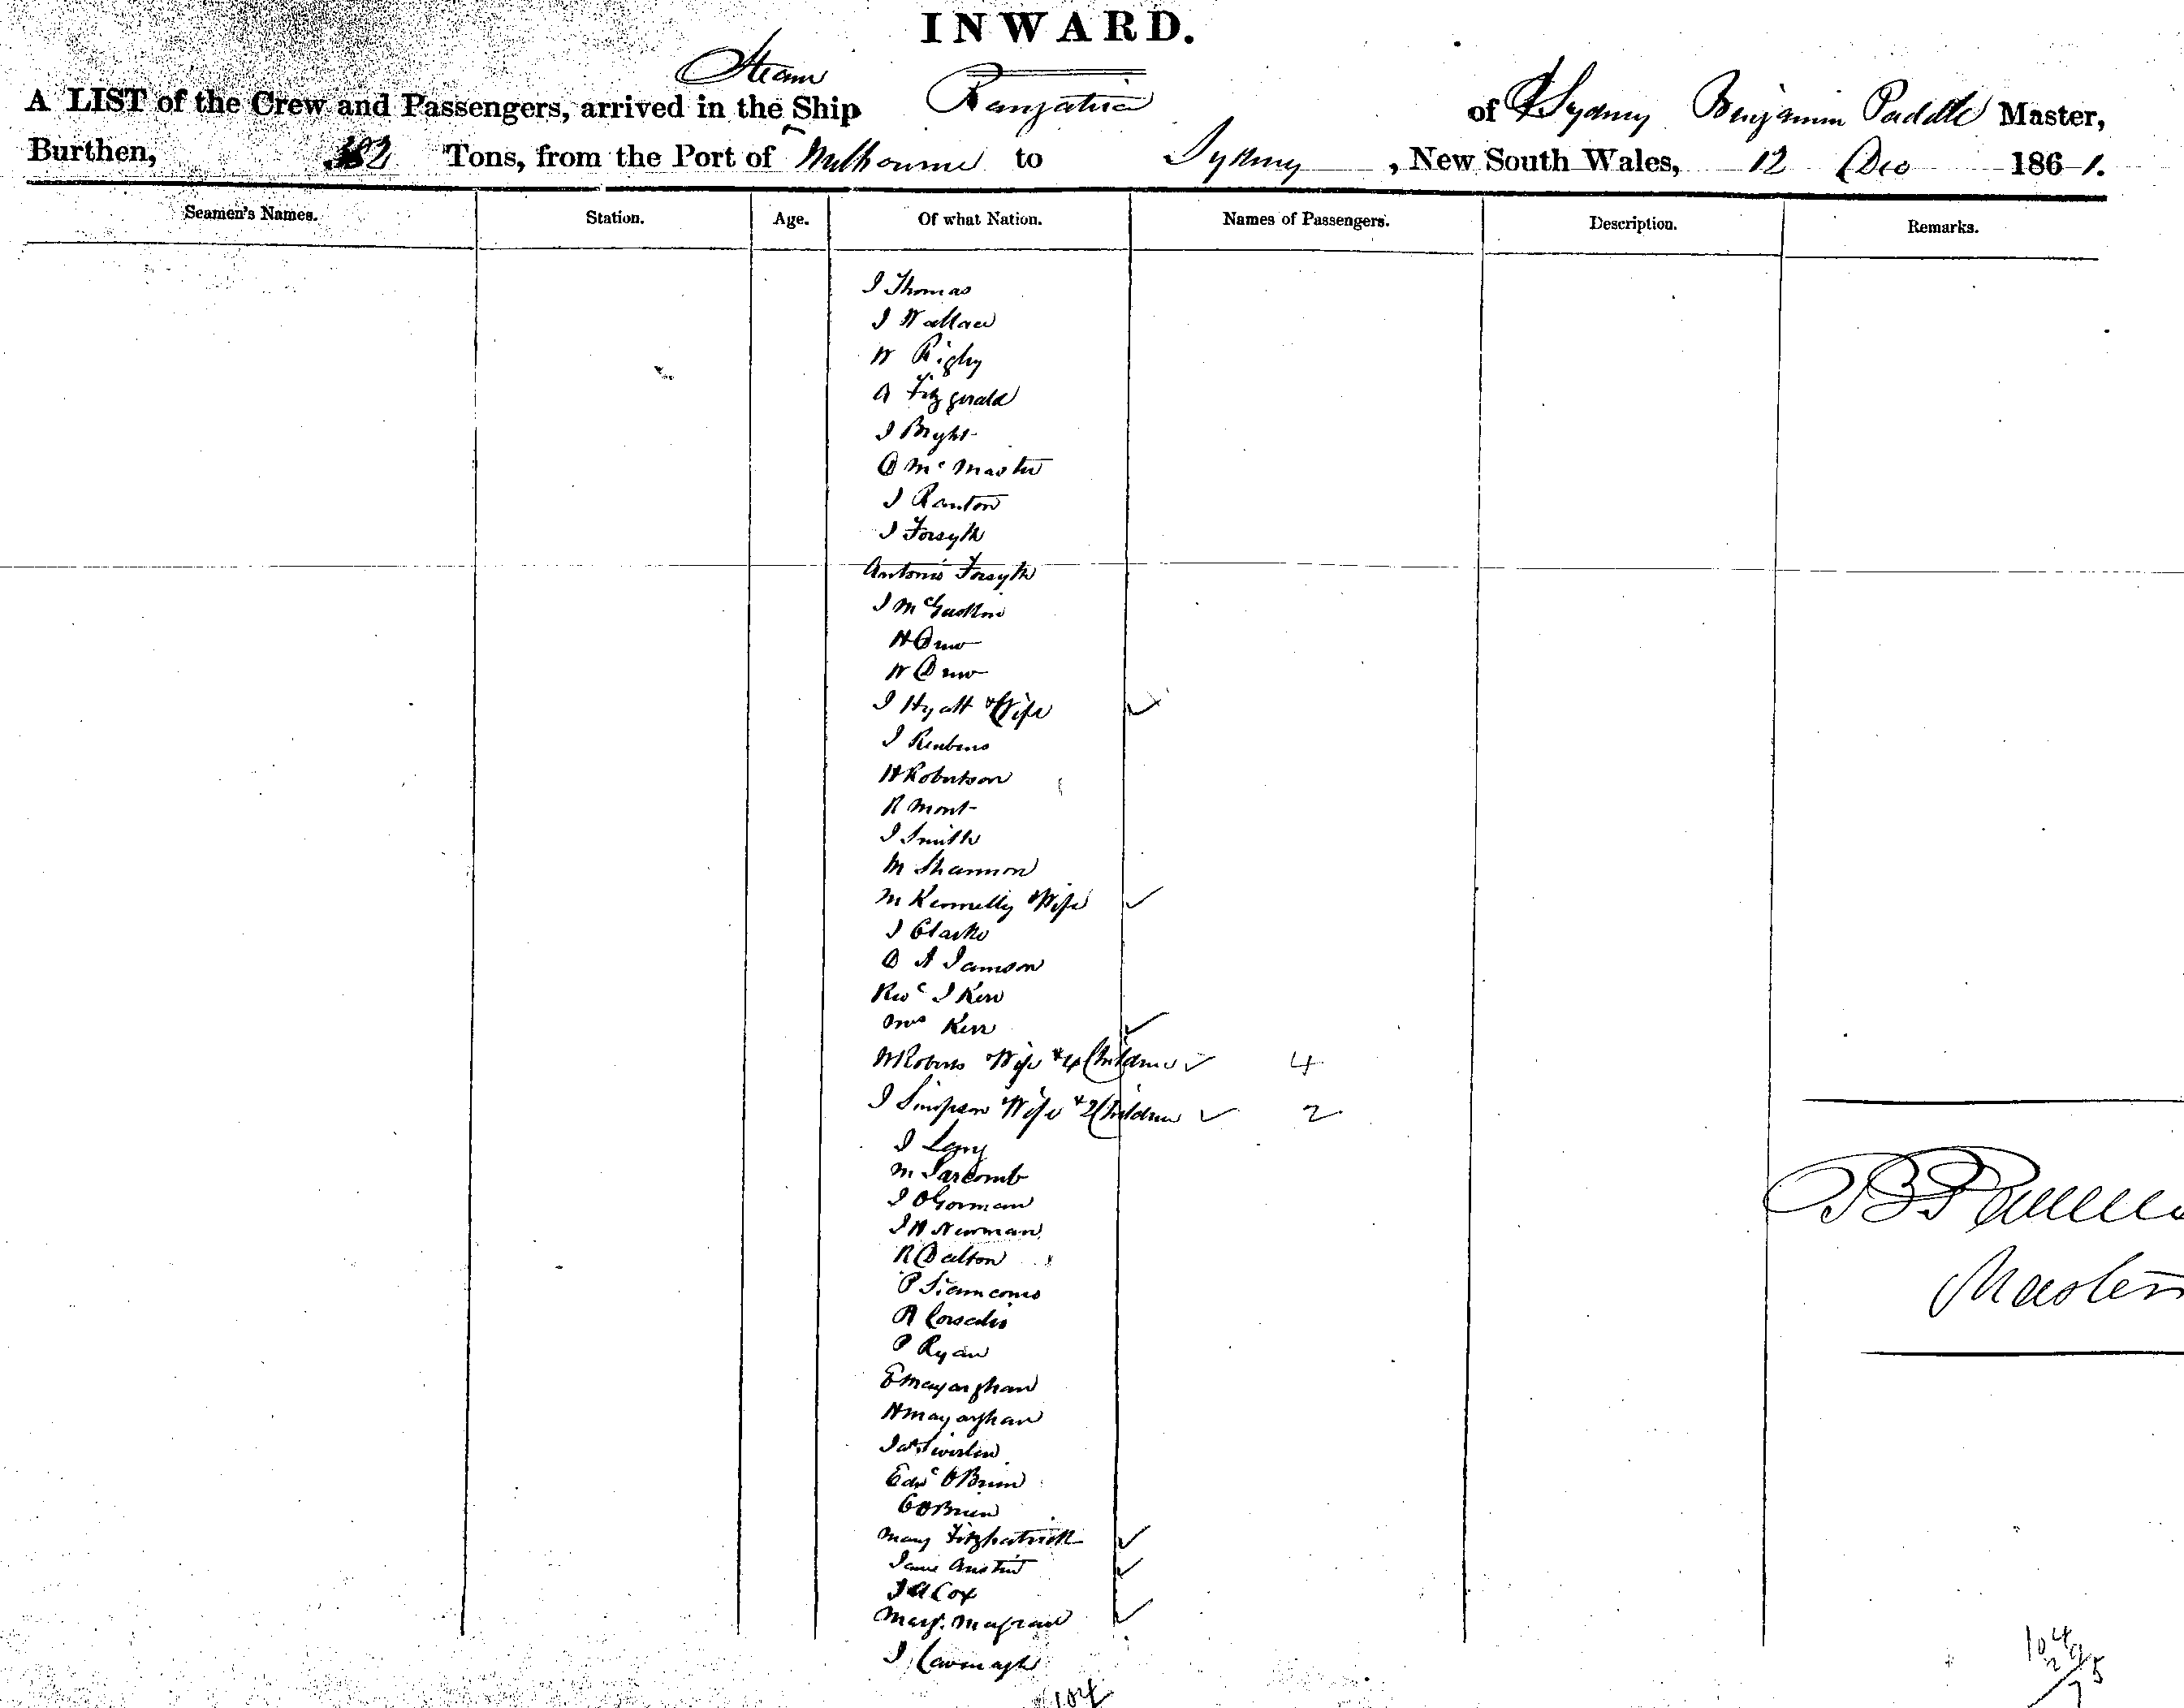 INWARD.
Steam
A LIST of the Crew and Passengers, arrived in the Ship Rangatira of Sydney Benjamin Paddle Master,
Burthen, 382 Tons, from the Port of Melbourne to Sydney, New South Wales, 12 Dec 1861.
Seamen's Names. Station. Age. Of what Nation. Names of Passengers. Description. Remarks.
J Thomas
J Wallace
W Rigby
A Fitzgerald
J Bright
D McMaster
J Ranton
J Forsyth
Antonio Forsyth
J
H Drew
W Drew
J Hyatt & Wife
J Reubens
H Robertson
R Mont
J Smith
M Shannon
M Kennelly & Wife
J Clarke
D A Jamson
Revd J Kerr
Mrs Kerr
W Roberts Wife & 4 Children 4
J Simpson Wife & 2 Children 2
J
M Sarcomb
J OGorman
J H Newman
R Dalton
P
A
P Ryan
E
H
Edwd OBrien
C OBrien
Mary Fitzpatrick
Jane Austin
J A Cox
Margt. Magrath
J Cavenagh
104
B
Master
104